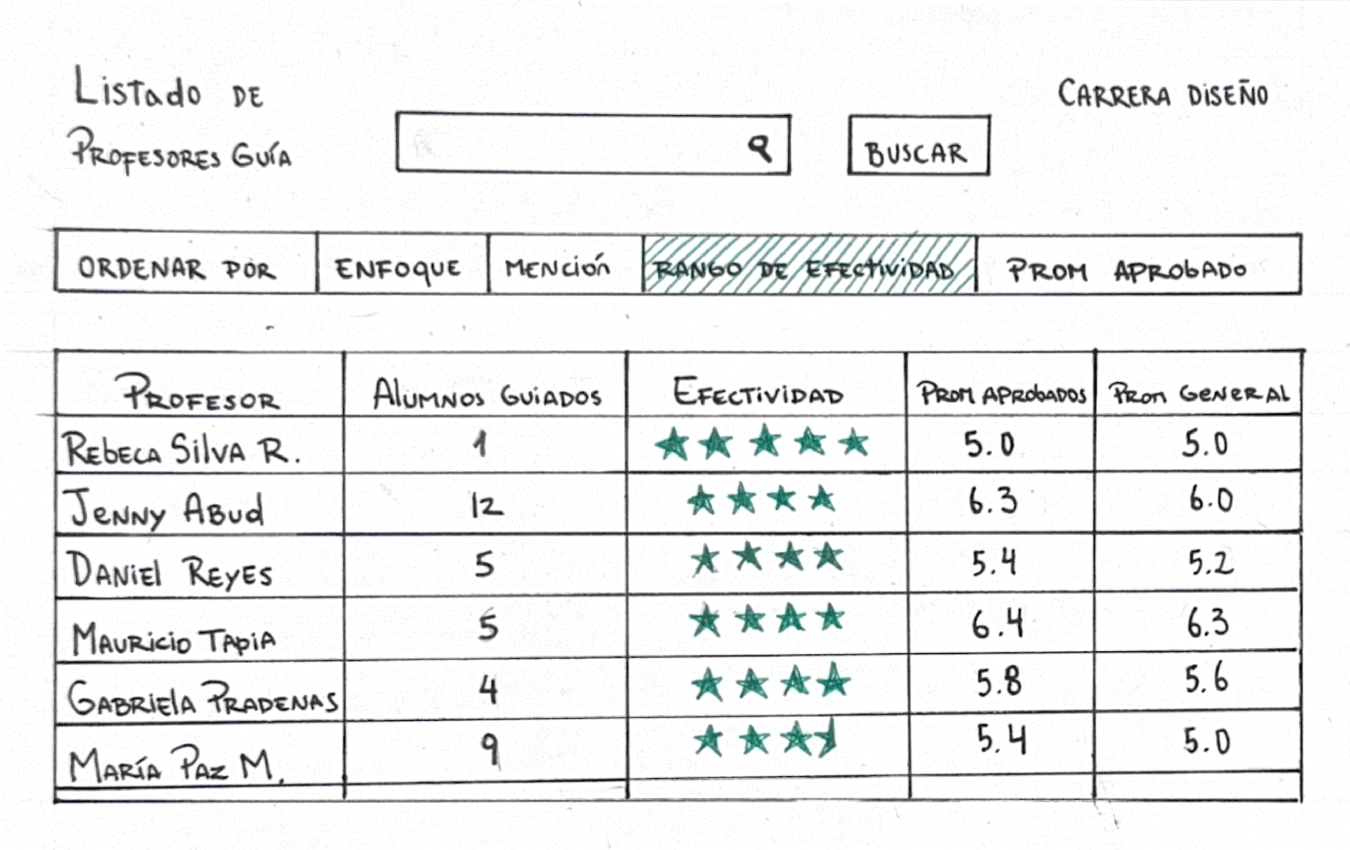 Listado DE
PROFESORES GUÍA
CARRERA DISEÑO
BUSCAR
ORDENAR POR ENFOQUE MENCIÓN RANGO DE EFECTIVIDAD PROM APROBADO
PROFESOR ALUMNOS GUIADOS EFECTIVIDAD PROM APROBADOS PROM GENERAL
REBECA SILVA R. 1 ★★★★★ 5.0 5.0
JENNY ABUD 12 ★★★★ 6.3 6.0
DANIEL REYES 5 ★★★★ 5.4 5.2
MAURICIO TAPIA 5 ★★★★ 6.4 6.3
GABRIELA PRADENAS 4 ★★★★ 5.8 5.6
MARÍA PAZ M. 9 ★★★⯨ 5.4 5.0